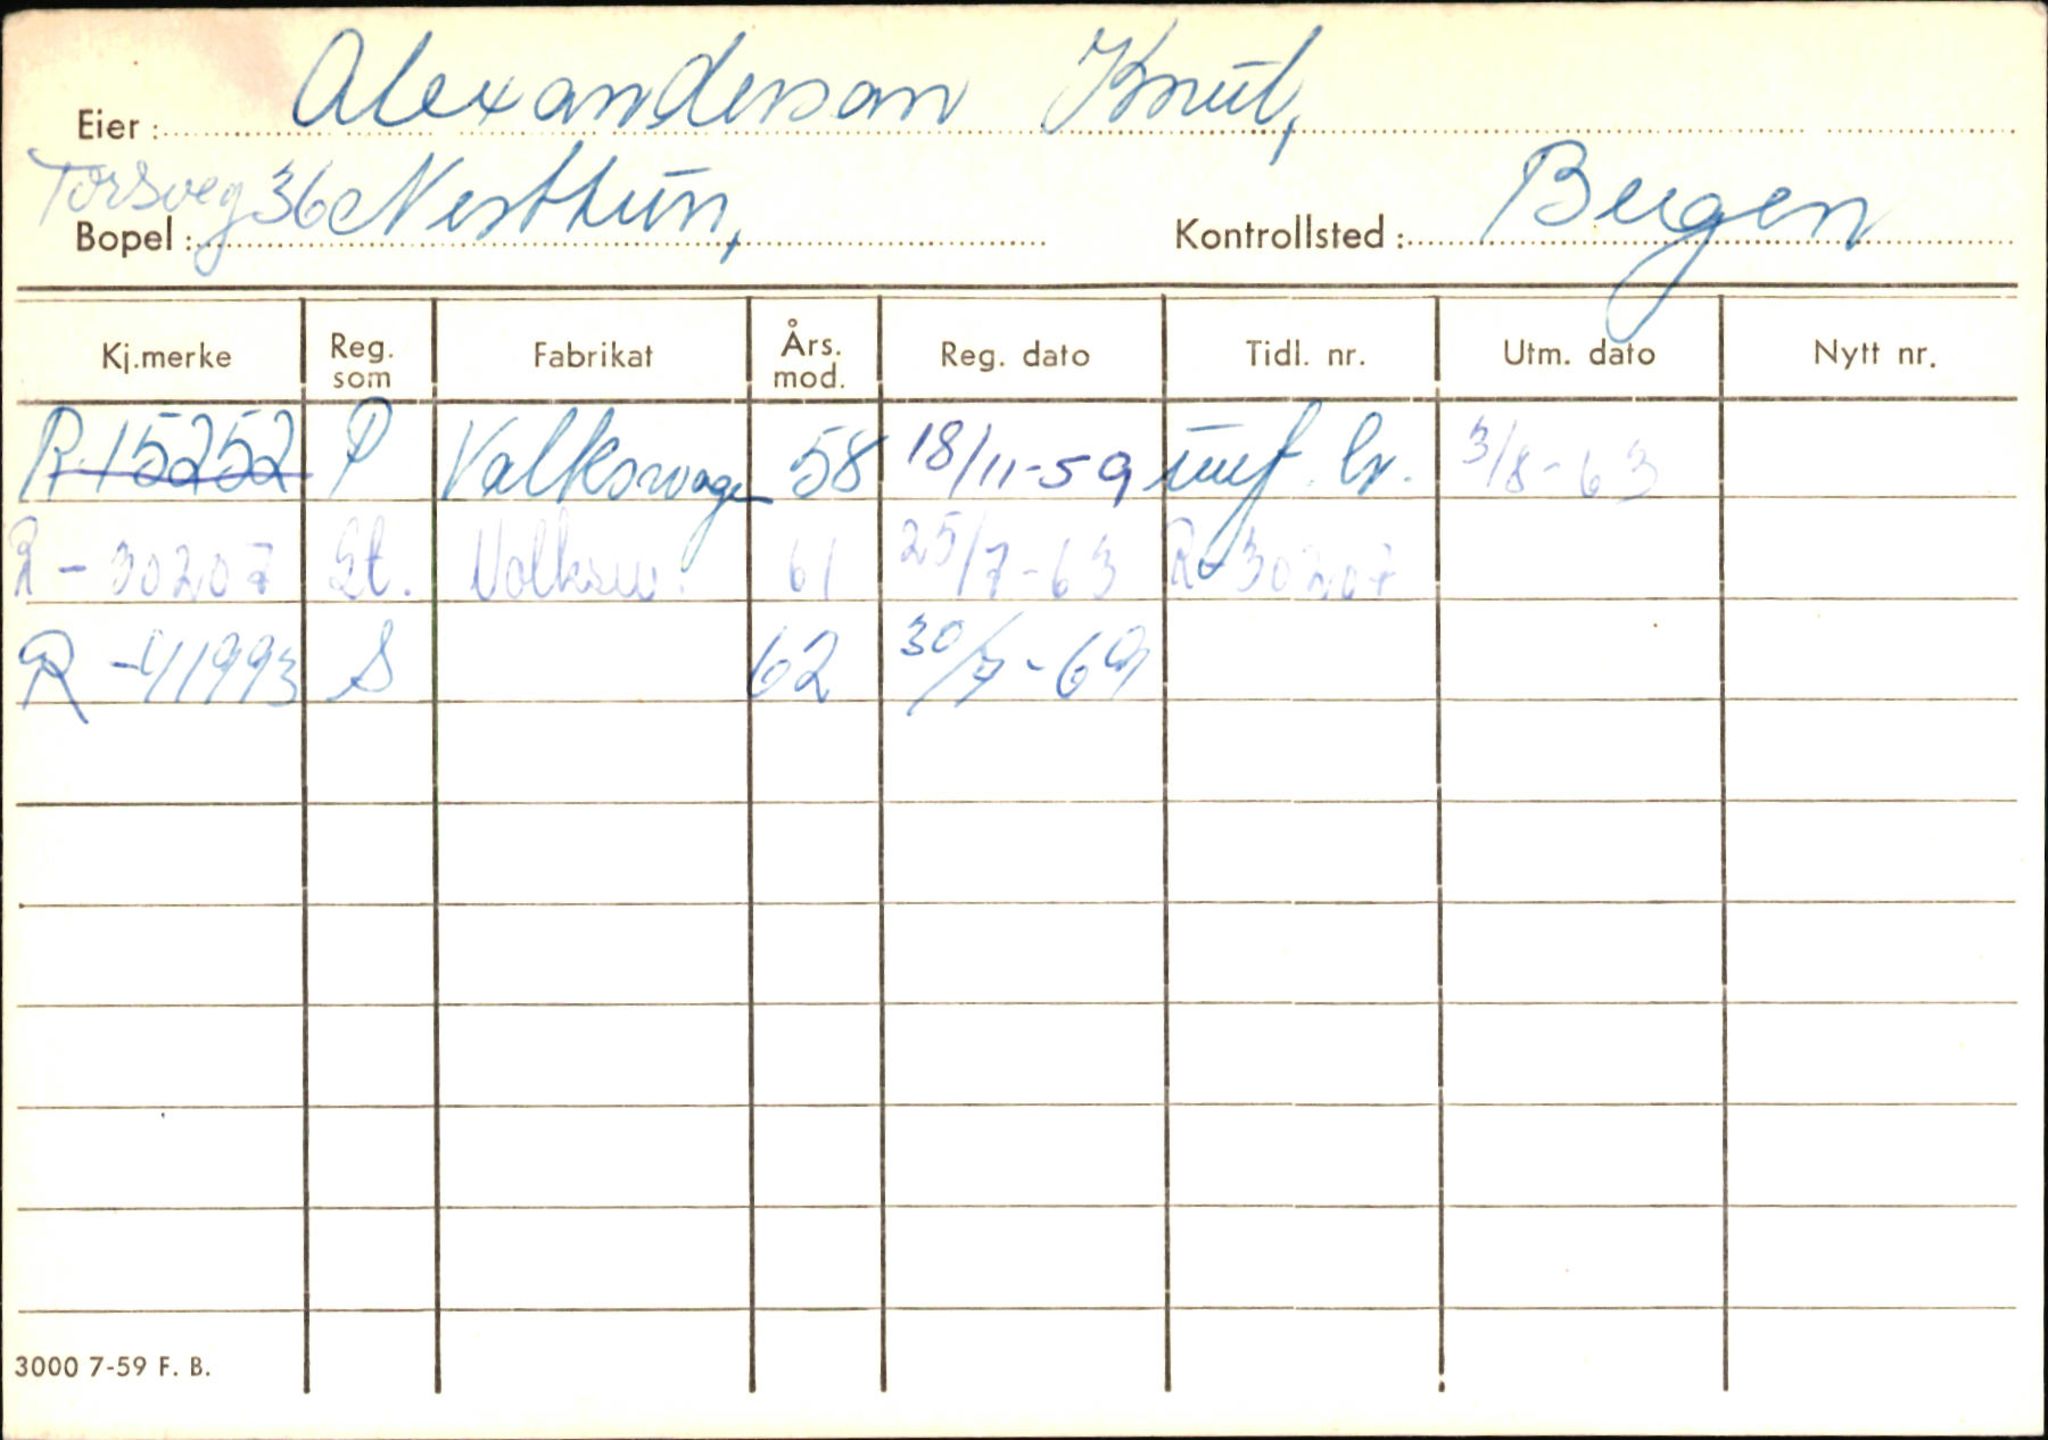 Eier : Alexanderson Knut,
Torsveg 36 Nesttun,
Bopel : Kontrollsted : Bergen
Kj.merke Reg. som Fabrikat Års. mod. Reg. dato Tidl. nr. Utm. dato Nytt nr.
R-15252 P Volkswagen 58 18/11-59 3/8-63
R-30207 St. Volksw. 61 25/7-63 R-30207
R-41993 S 62 30/7-69
3000 7-59 F. B.